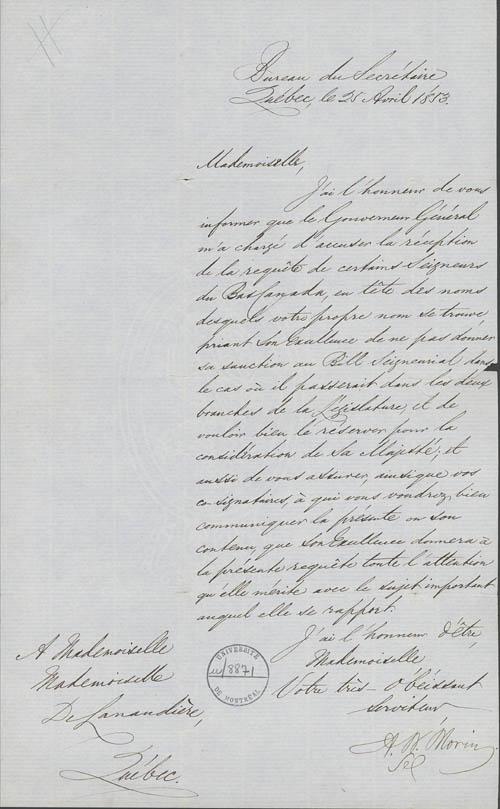 Bureau du Secrétaire
Québec, le 25 Avril 1853.
Mademoiselle,
J'ai l'honneur de vous
informer que le Gouverneur Général
m'a chargé d'accuser la réception
de la requête de certains Seigneurs
du Bas Canada, en tête des noms
desquels votre propre nom se trouve
priant Son Excellence de ne pas donner
sa sanction au Bill Seigneurial dans
le cas où il passerait dans les deux
branches de la Législature, et de
vouloir bien le réserver pour la
considération de Sa Majesté; et
aussi de vous assurer, ainsique vos
co-signataires, à qui vous voudrez bien
communiquer la présente ou son
contenu, que Son Excellence donnera à
la présente requête toute l'attention
qu'elle mérite avec le sujet important
auquel elle se rapport.
J'ai l'honneur d'être,
Mademoiselle
Votre très-Obéissant
Serviteur
A. N. Morin
A Mademoiselle
Mademoiselle
De Lanaudière,
Québec.
UNIVERSITÉ
8871
DE MONTRÉAL